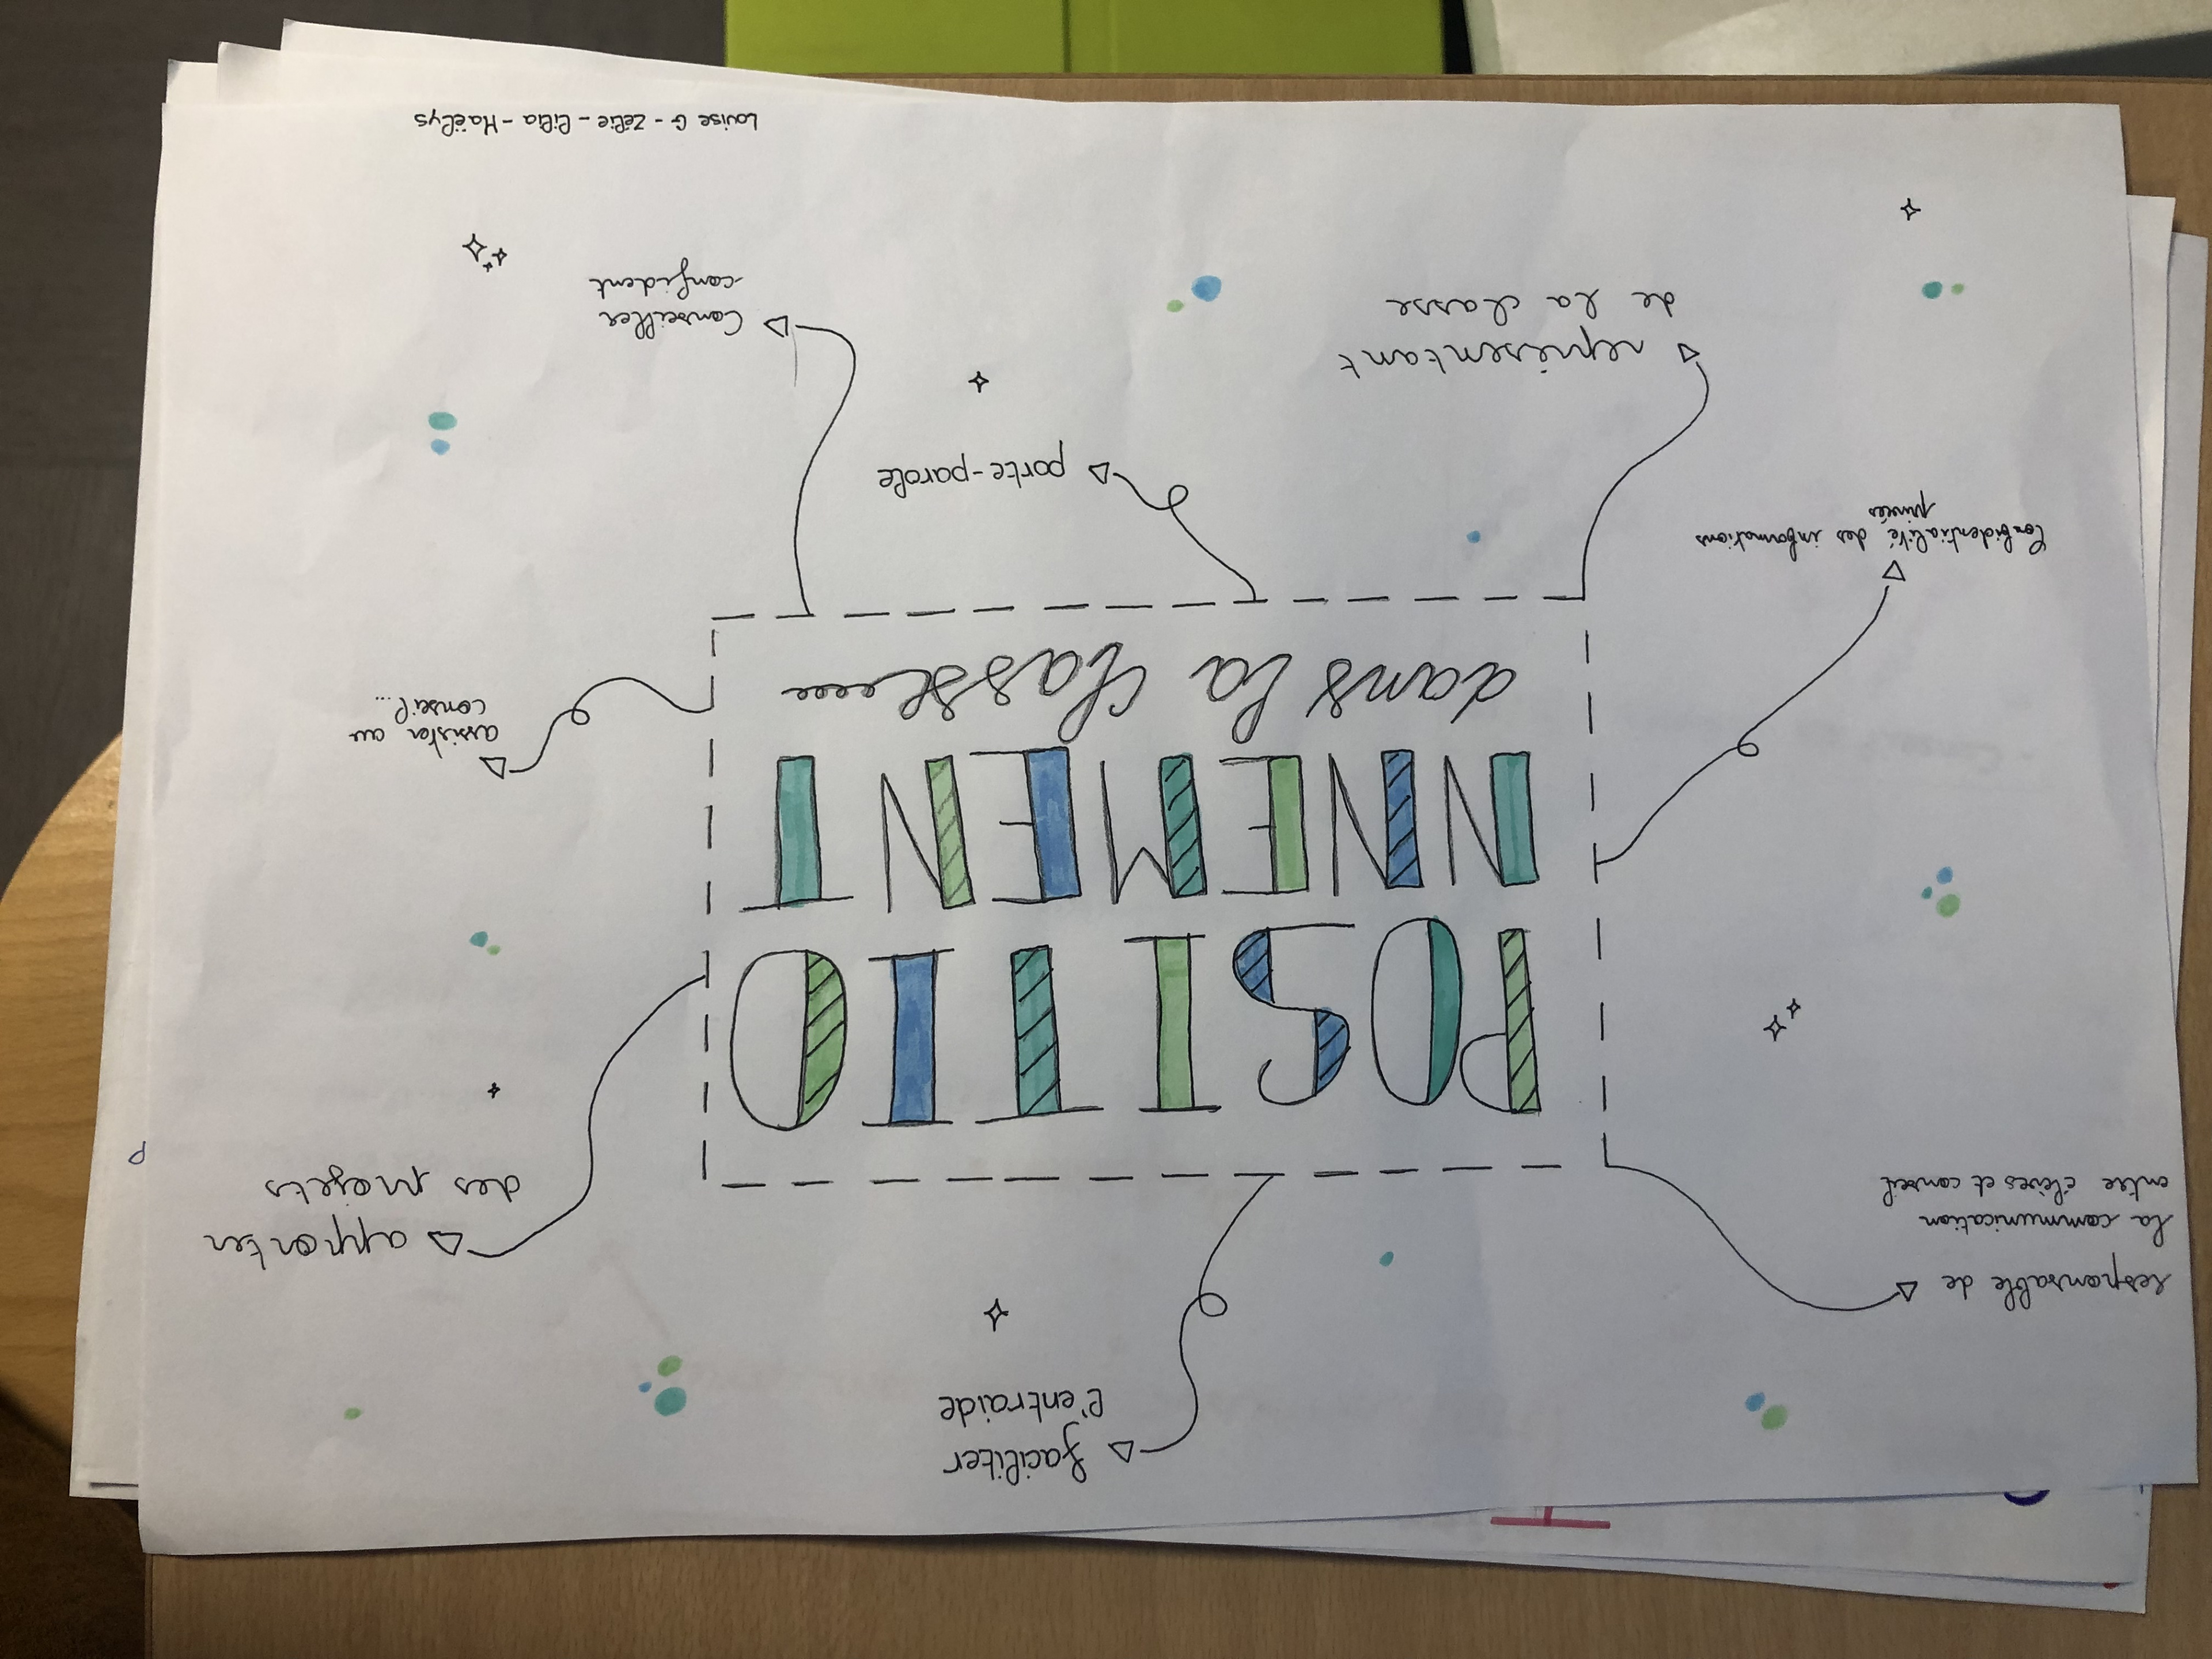 faciliter
l'entraide
responsable de
la communication
entre élèves et conseil
apporter
des projets
POSITIO
NNEMENT
dans la classe
assister au
conseil...
Confidentialité des informations
privées
porte-parole
représentant
de la classe
Conseiller
confident
Louise G - Zélie - Lilia - Maëlys